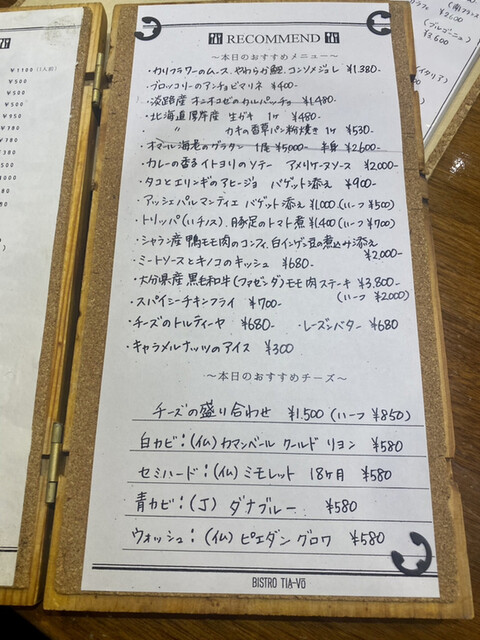 RECOMMEND
～本日のおすすめメニュー～
・カリフラワーのムース、やわらか鮑、コンソメジュレ ¥1,380-
・ブロッコリーのアンチョビマリネ ¥400-
・淡路産 オニオコゼのカルパッチョ ¥1,480-
・北海道厚岸産 生ガキ 1ヶ ¥480-
・ 〃 カキの香草パン粉焼き 1ヶ ¥530-
・オマール海老のグラタン 1尾 ¥5000- 半身 ¥2600-
・カレーの香るイトヨリのソテー アメリケーヌソース ¥2,000-
・タコとエリンギのアヒージョ バゲット添え ¥900-
・アッシェパルマンティエ バゲット添え ¥1,000 (ハーフ ¥500)
・トリッパ(ハチノス)、豚足のトマト煮 ¥1,400 (ハーフ ¥700)
・シャラン産 鴨モモ肉のコンフィ、白インゲン豆の煮込み添え
¥2,000-
・ミートソースとキノコのキッシュ ¥680-
・大分県産 黒毛和牛(ファゼンダ)モモ肉ステーキ ¥3,800-
(ハーフ 2,000)
・スパイシーチキンフライ ¥700-
・チーズのトルティーヤ ¥680- ・レーズンバター ¥680
・キャラメルナッツのアイス ¥300
～本日のおすすめチーズ～
チーズの盛り合わせ ¥1,500 (ハーフ ¥850)
白カビ：(仏) カマンベール クールド リヨン ¥580
セミハード：(仏) ミモレット 18ヶ月 ¥580
青カビ：(J) ダナブルー ¥580
ウォッシュ：(仏) ピエダングロワ ¥580
BISTRO TIA-VO
¥1100 (1人前)
¥500
¥500
¥500
¥950
¥780
¥380
¥780
(南フランス
¥2,600
(ブルゴーニュ)
¥3,600
イタリア)